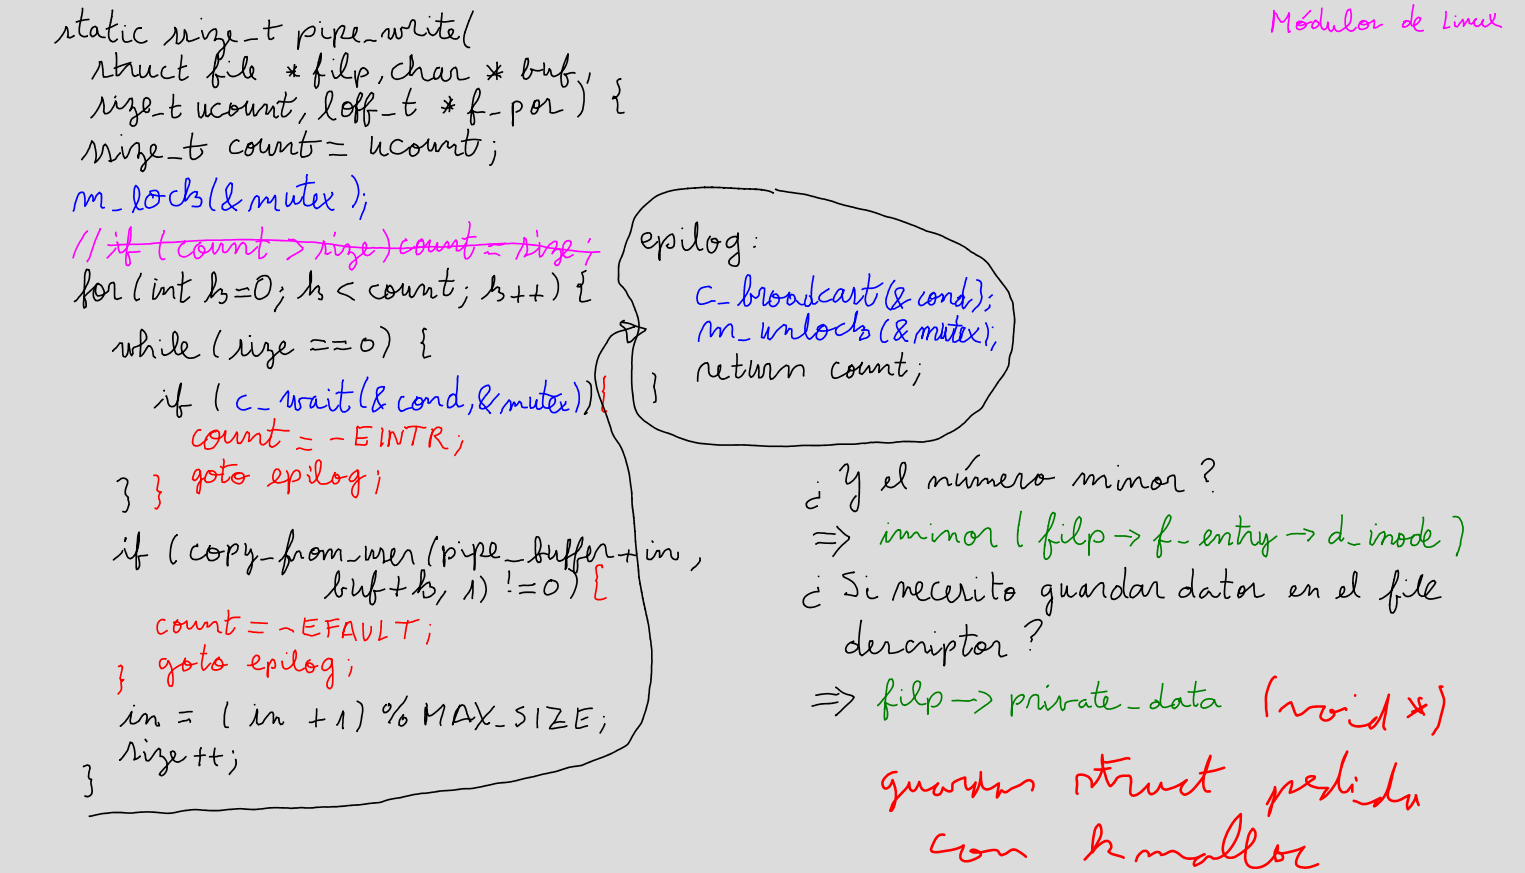 Módulos de Linux
static ssize_t pipe_write(
struct file * filp, char * buf,
size_t ucount, loff_t * f_pos) {
ssize_t count = ucount;
m_lock(&mutex);
// if (count > size) count = size;
for (int k=0; k < count; k++) {
while (size == 0) {
if ( c_wait(&cond, &mutex)) {
count = -EINTR;
goto epilog;
} }
if (copy_from_user (pipe_buffer + in ,
buf+k, 1) != 0) {
count = -EFAULT;
} goto epilog;
in = (in + 1) % MAX_SIZE;
size++;
}
epilog:
c_broadcast(&cond);
m_unlock(&mutex);
return count;
}
¿ Y el número minor ?
=> iminor ( filp -> f_entry -> d_inode )
¿ Si necesito guardar datos en el file
descriptor ?
=> filp -> private_data (void *)
guardar struct pedida
con kmalloc